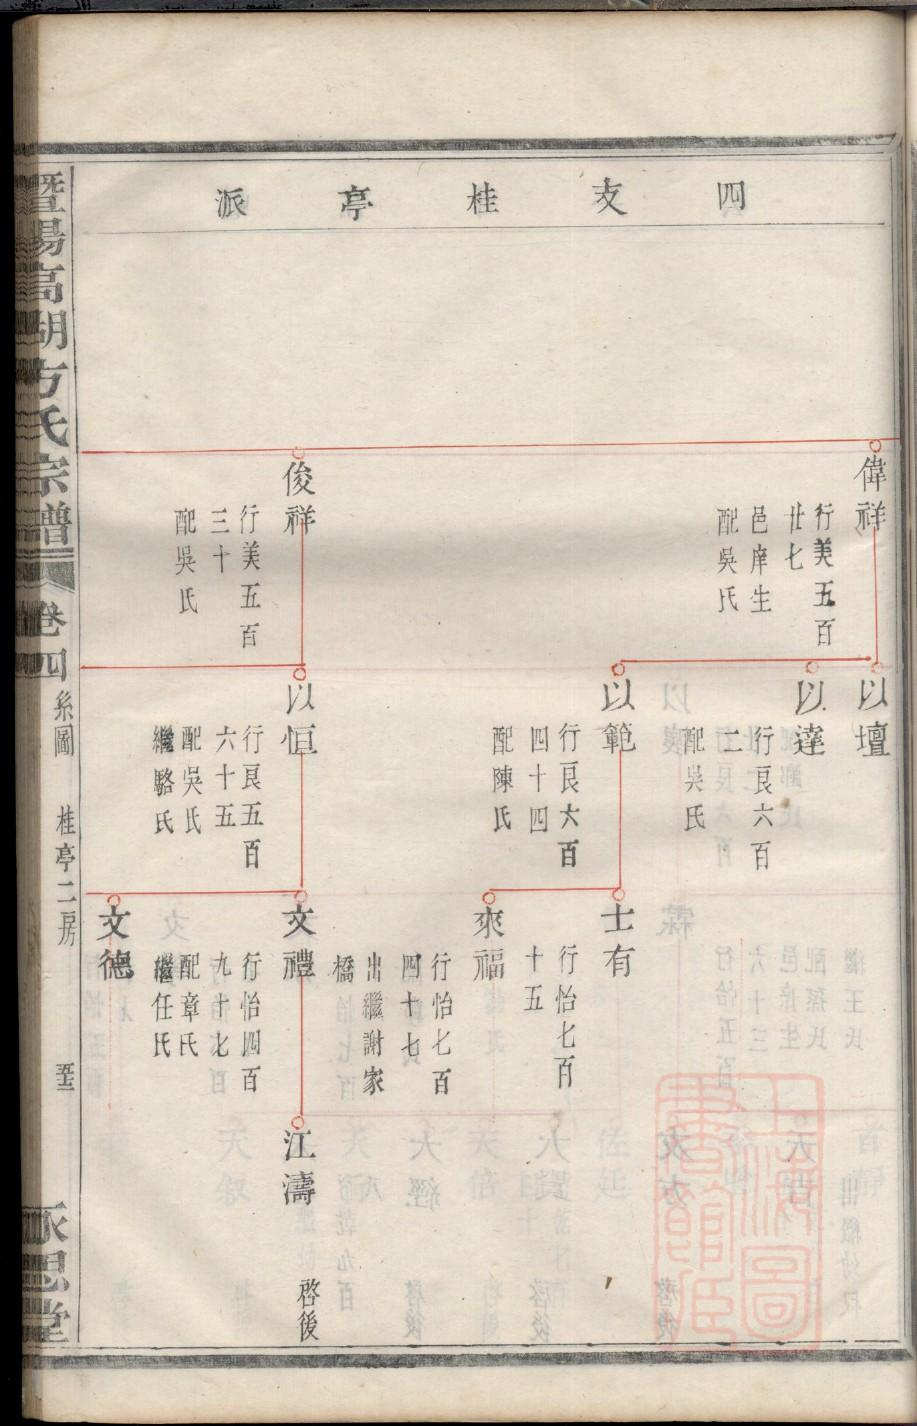 四支桂亭派
偉祥
行美五百
廿七
邑庠生
配吳氏
俊祥
行美五百
三十
配吳氏
以壇
以達
行良六百
二
配吳氏
以範
行良六百
四十四
配陳氏
以恒
行良五百
六十五
配吳氏
繼駱氏
士有
行怡七百
十五
來福
行怡七百
四十七
出繼謝家
橋
文禮
行怡四百
九十七
配章氏
繼任氏
文德
江濤
啓後
暨陽高湖方氏宗譜
卷四
系圖
桂亭二房
永思堂
上海圖書館藏